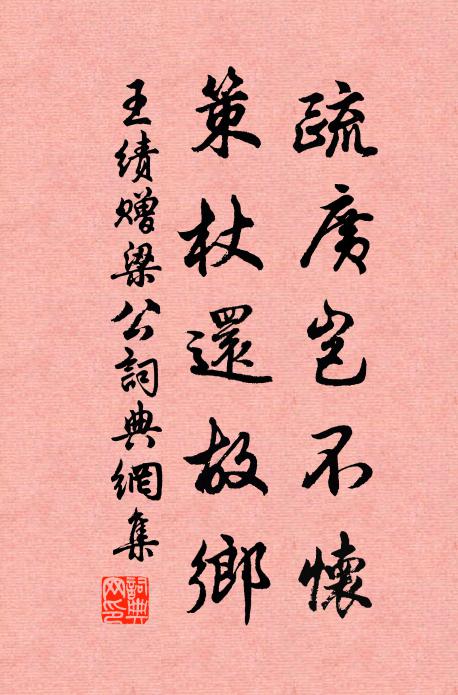 疏廣豈不懷
策杖還故鄉
王績贈梁公詞典網集
詞典網印